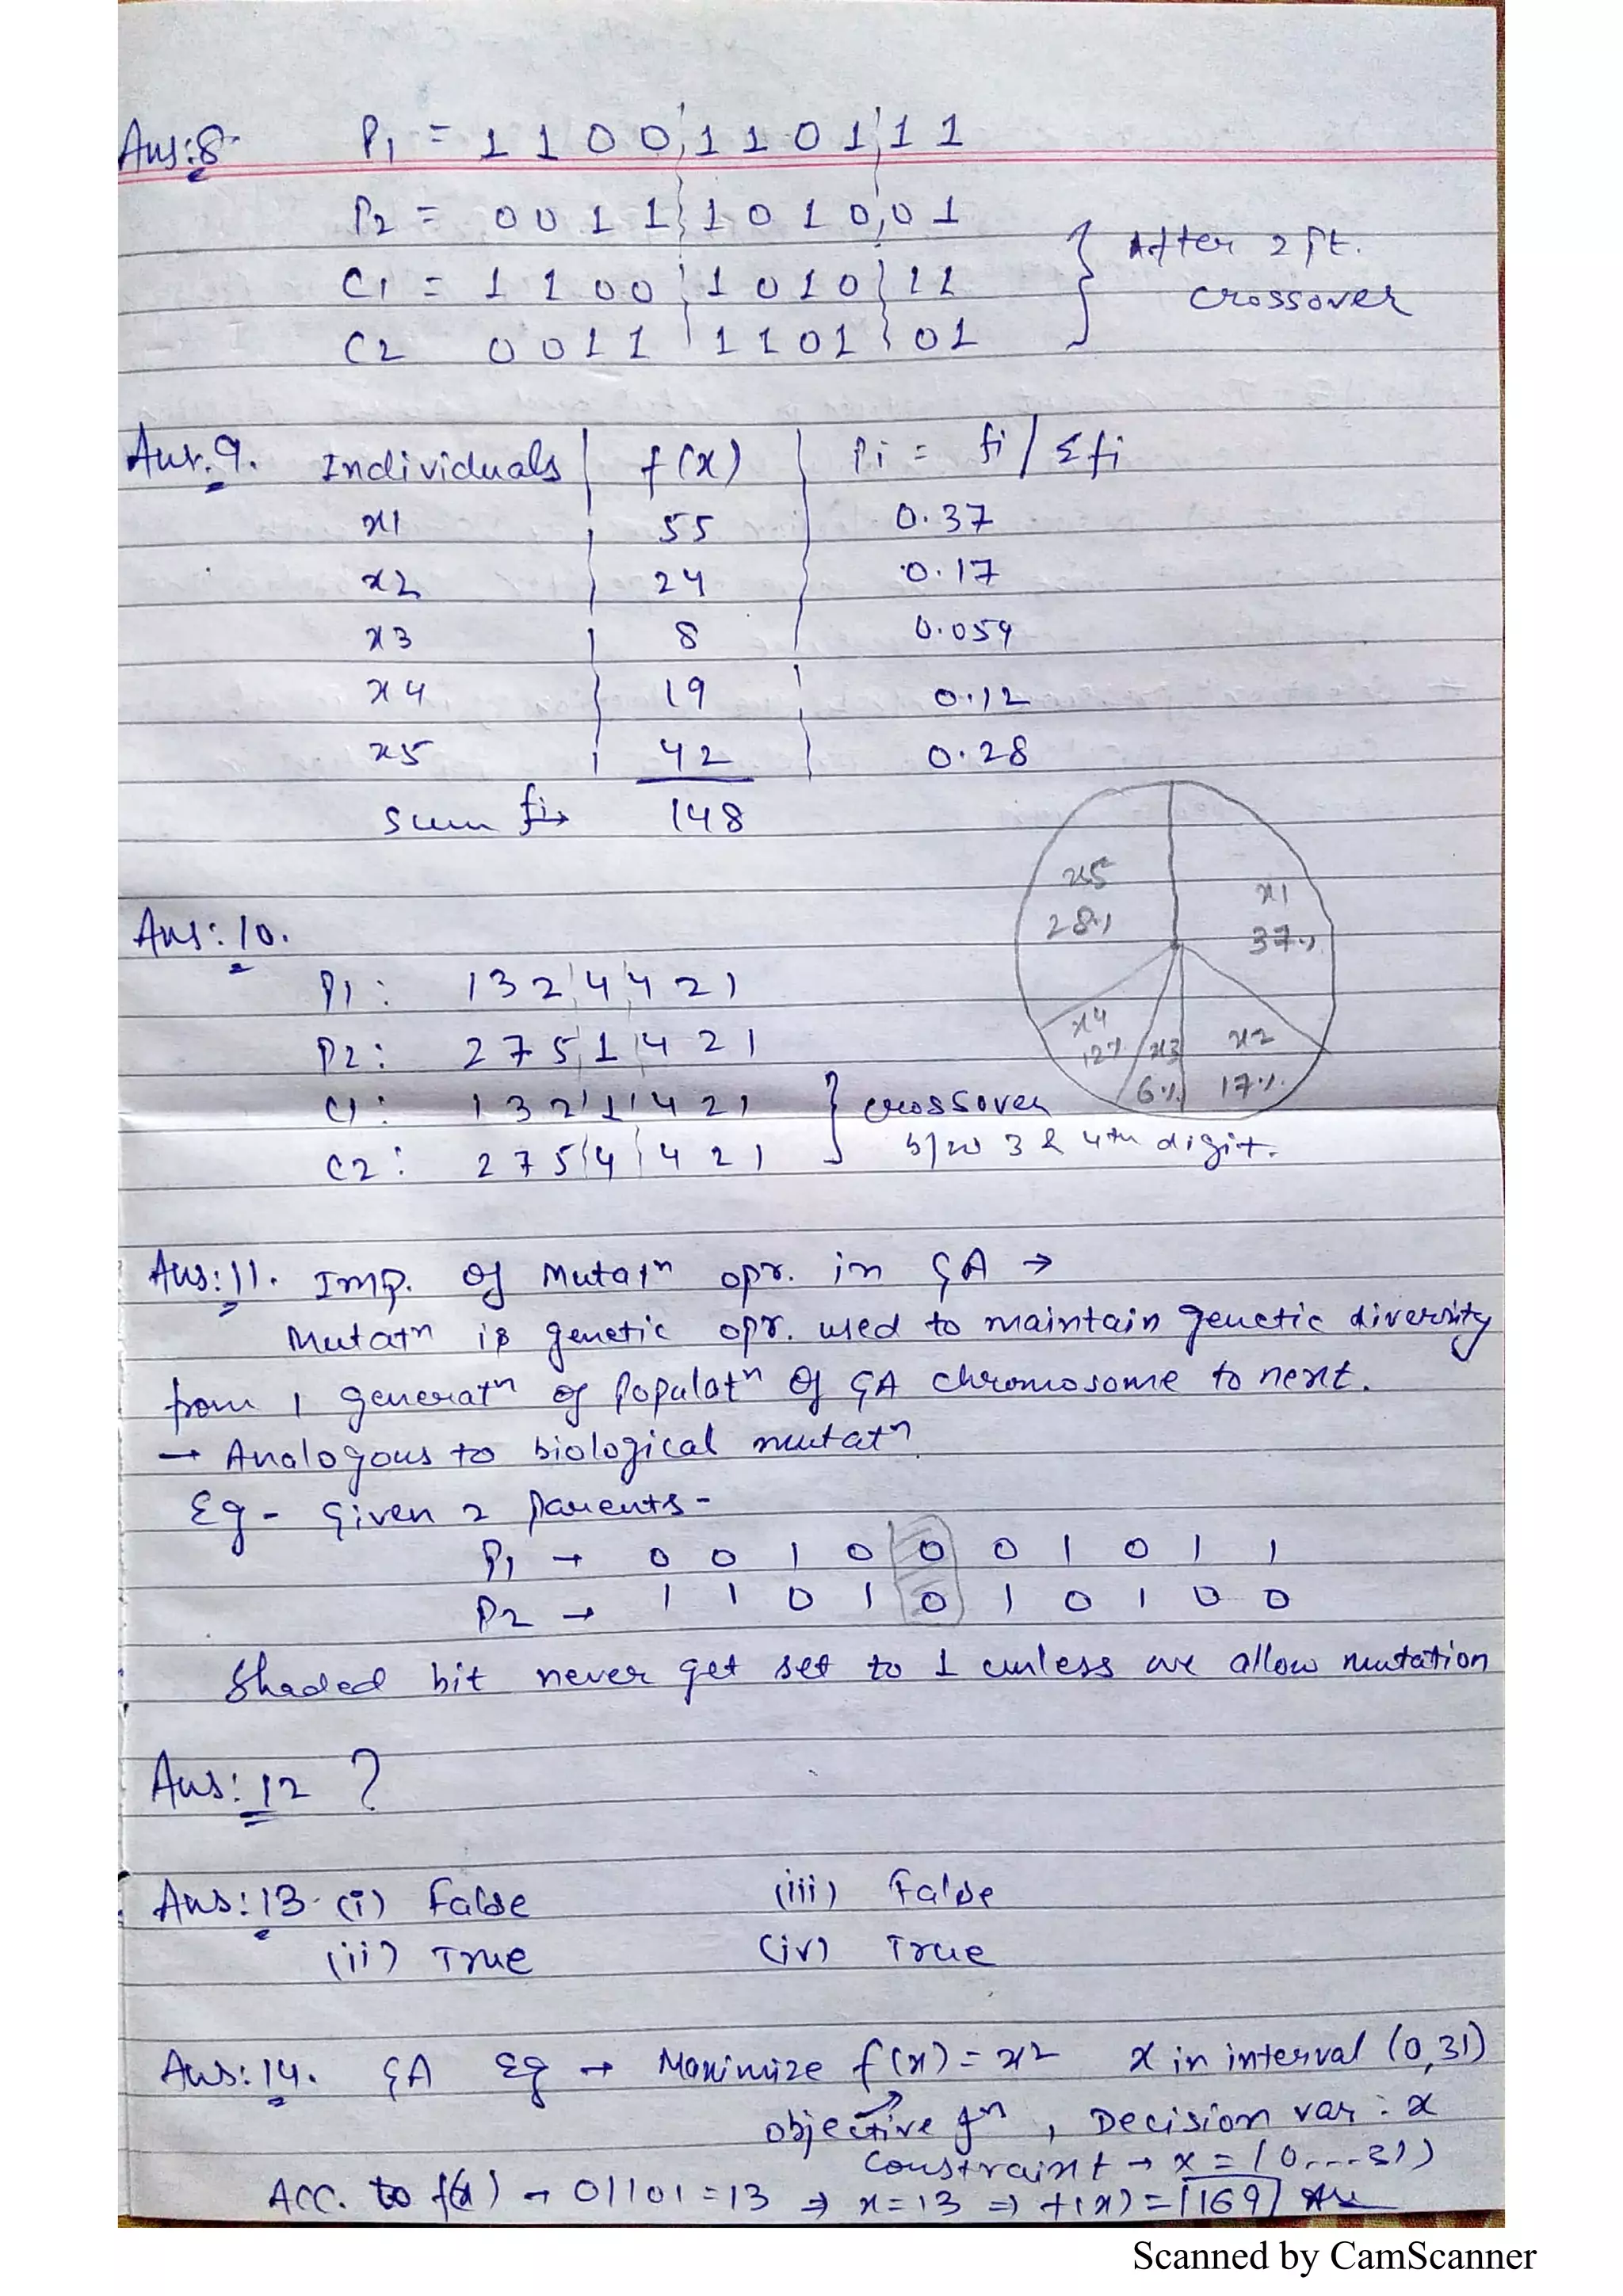 Ans:8- P1 = 1 1 0 0 1 1 0 1 1 1
P2 = 0 0 1 1 1 0 1 0 0 1
C1 = 1 1 0 0 1 0 1 0 1 1
C2 0 0 1 1 1 1 0 1 0 1
} After 2 pt.
crossover
Ans.9. Individuals | f(x) | Pi = fi / Σfi
x1 55 0.37
x2 24 0.17
x3 8 0.059
x4 19 0.12
x5 42 0.28
Sum fi → 148
x5
28%
x1
37%
x4
12%
x3
6%
x2
17%
Ans: 10.
P1: 1 3 2 4 4 2 1
P2: 2 7 5 1 4 2 1
C1: 1 3 2 1 4 2 1 } crossover
C2: 2 7 5 4 4 2 1 b/w 3 & 4th digit.
Ans: 11. Imp. of Mutatn opr. in GA →
Mutatn is genetic opr. used to maintain genetic diversity
from 1 generatn of Populatn of GA chromosome to next.
→ Analogous to biological mutatn
Eg - Given 2 parents -
P1 → 0 0 1 0 0 0 1 0 1 1
P2 → 1 1 0 1 0 1 0 1 0 0
Shaded bit never get set to 1 unless we allow mutation
Ans: 12 ?
Ans: 13. (i) False (iii) False
(ii) True (iv) True
Ans: 14. GA Eg → Maximize f(x) = x2 x in interval (0,31)
objective fn, Decision var : x
Constraint → x = (0,...31)
Acc. to f(x) → 01101 = 13 ⇒ x = 13 ⇒ f(x) = 169 Ans
Scanned by CamScanner